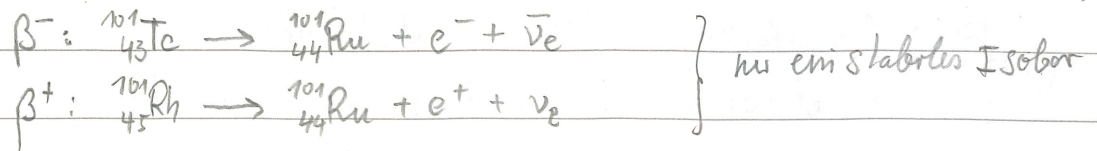 β⁻: ¹⁰¹₄₃Tc → ¹⁰¹₄₄Ru + e⁻ + ν̄e
β⁺: ¹⁰¹₄₅Rh → ¹⁰¹₄₄Ru + e⁺ + νe
} nur ein stabiles Isobar